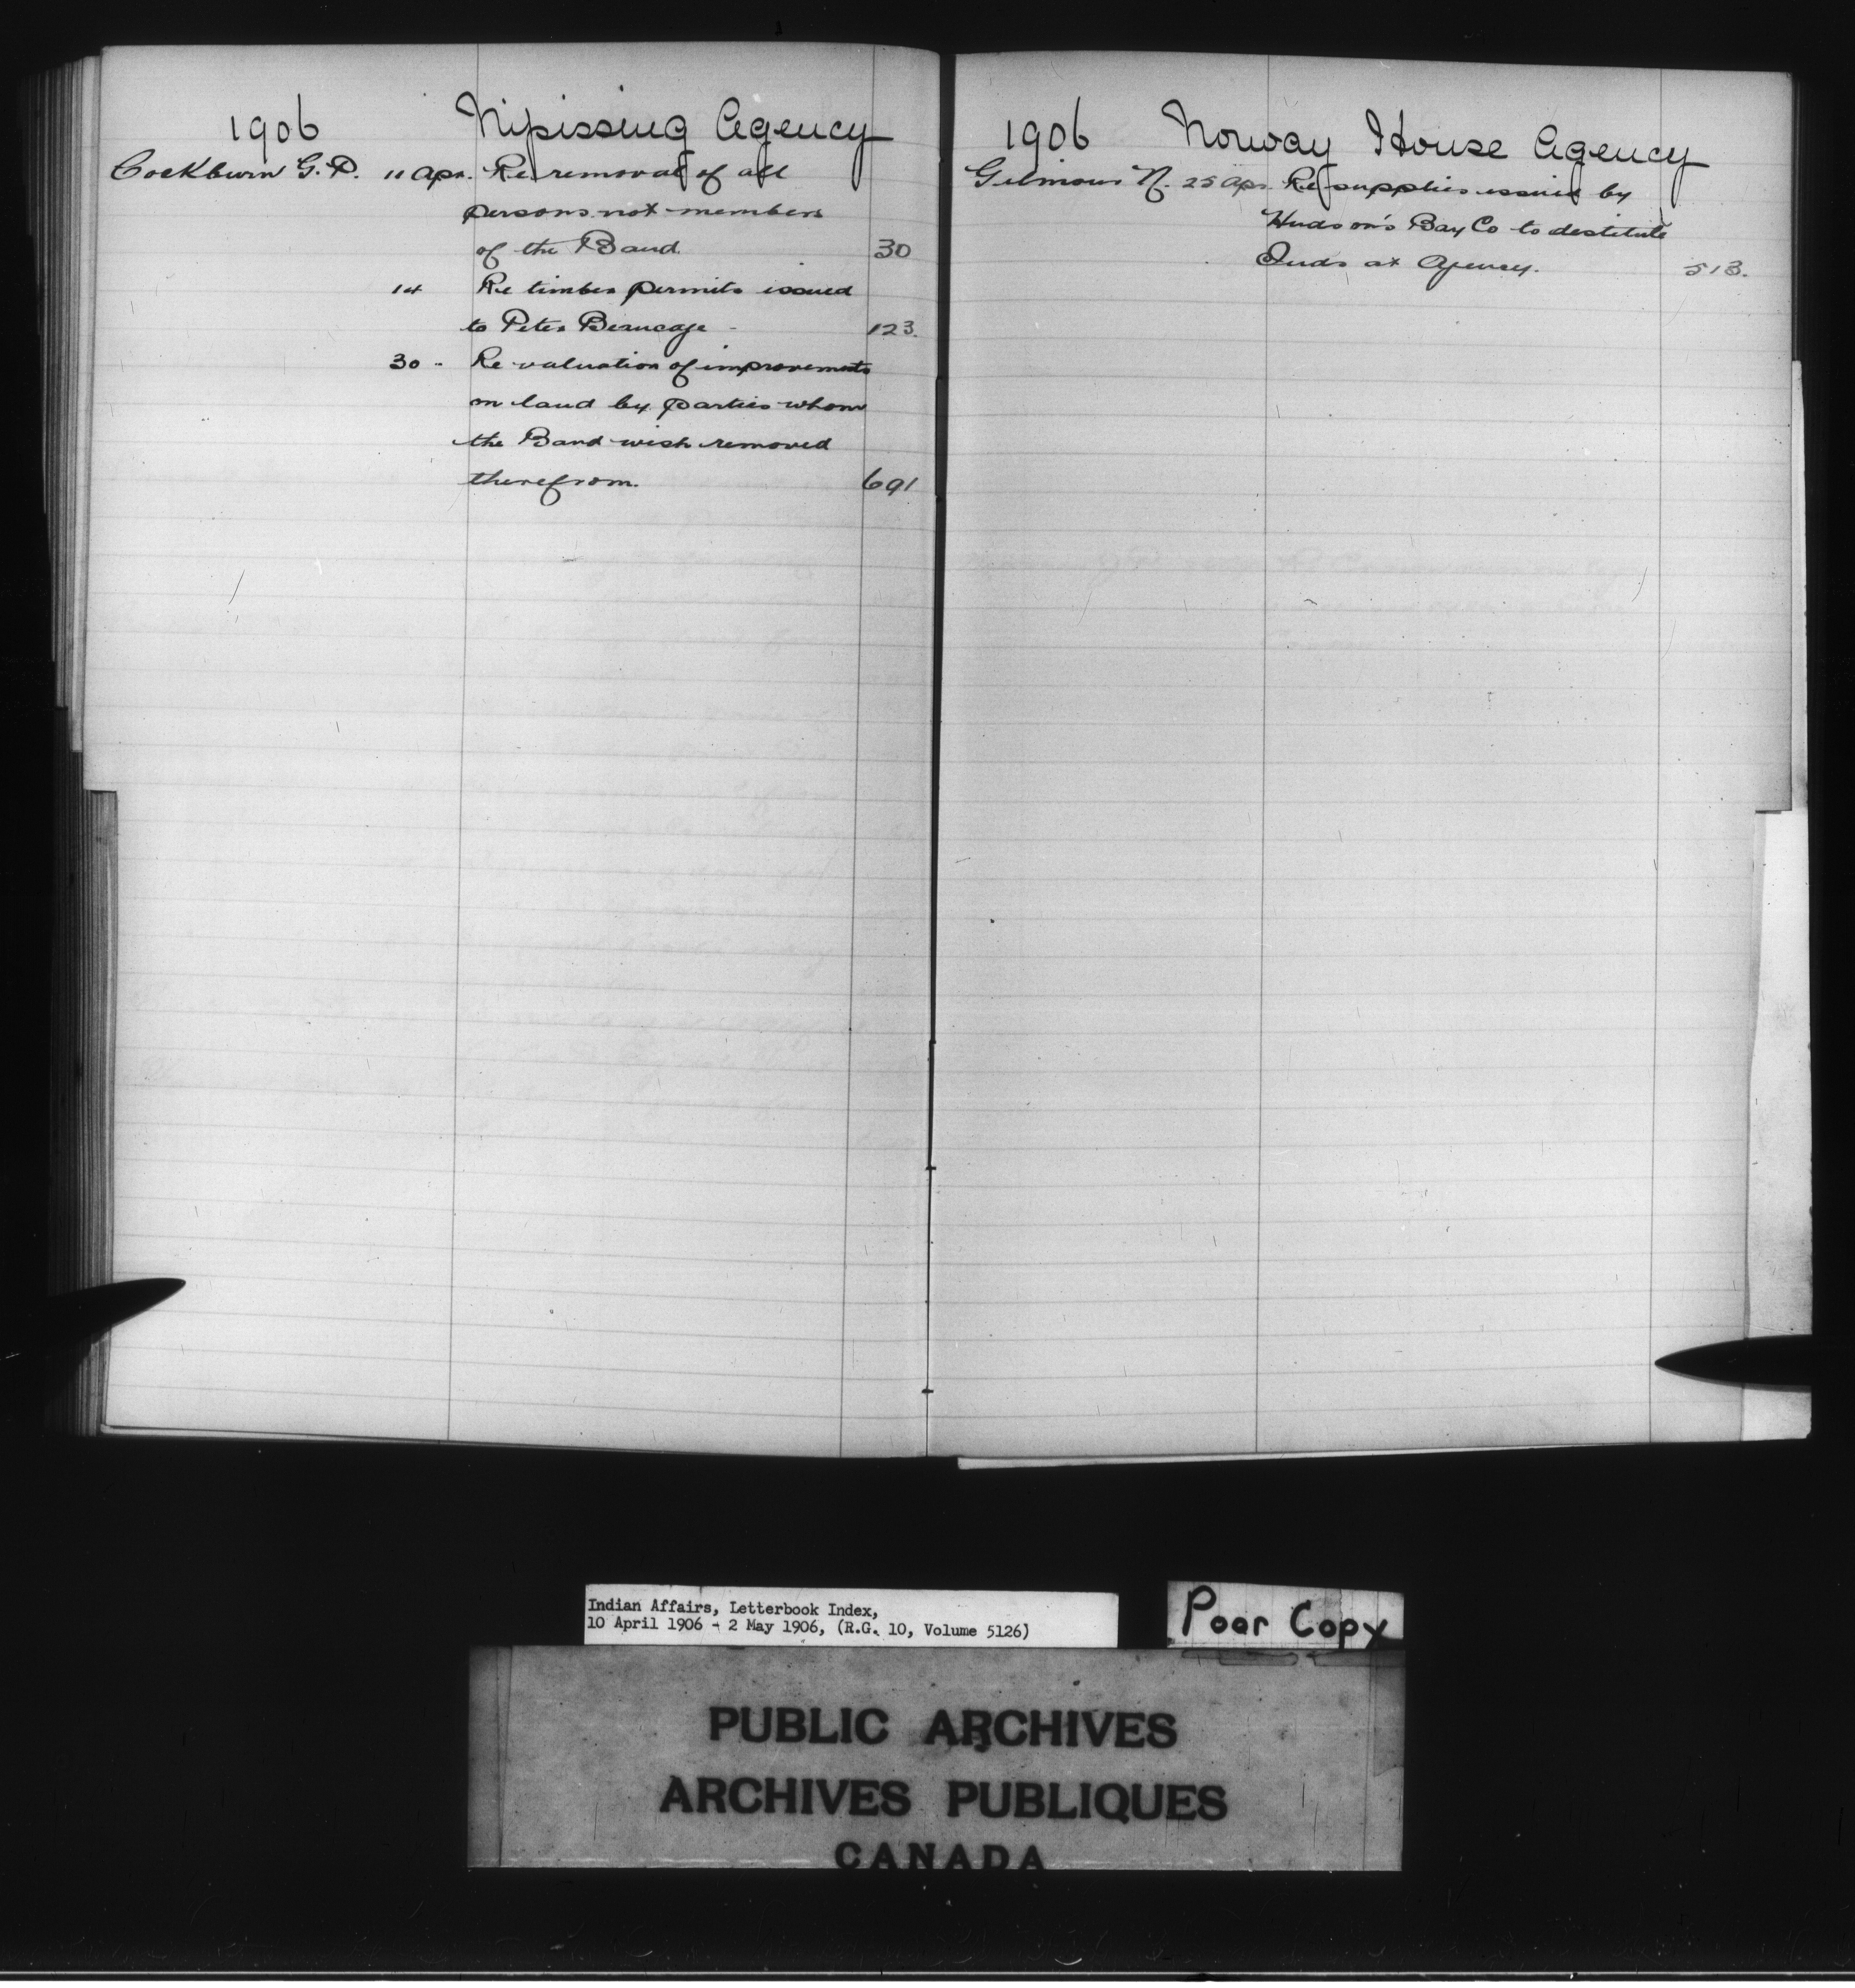 1906 Nipissing Agency
Cockburn G. P. 11 Apr. Re removal of all
persons not members
of the Band. 30
14 Re timber permits issued
to Peter Beaucage - 123.
30 - Re valuation of improvements
on land by parties whom
the Band wish removed
therefrom. 691
1906 Norway House Agency
Gilmour N. 25 Apr. Re supplies issued by
Hudson's Bay Co to destitute
Inds at Agency. 513.
Indian Affairs, Letterbook Index,
10 April 1906 - 2 May 1906, (R.G. 10, Volume 5126)
Poor Copy
PUBLIC ARCHIVES
ARCHIVES PUBLIQUES
CANADA